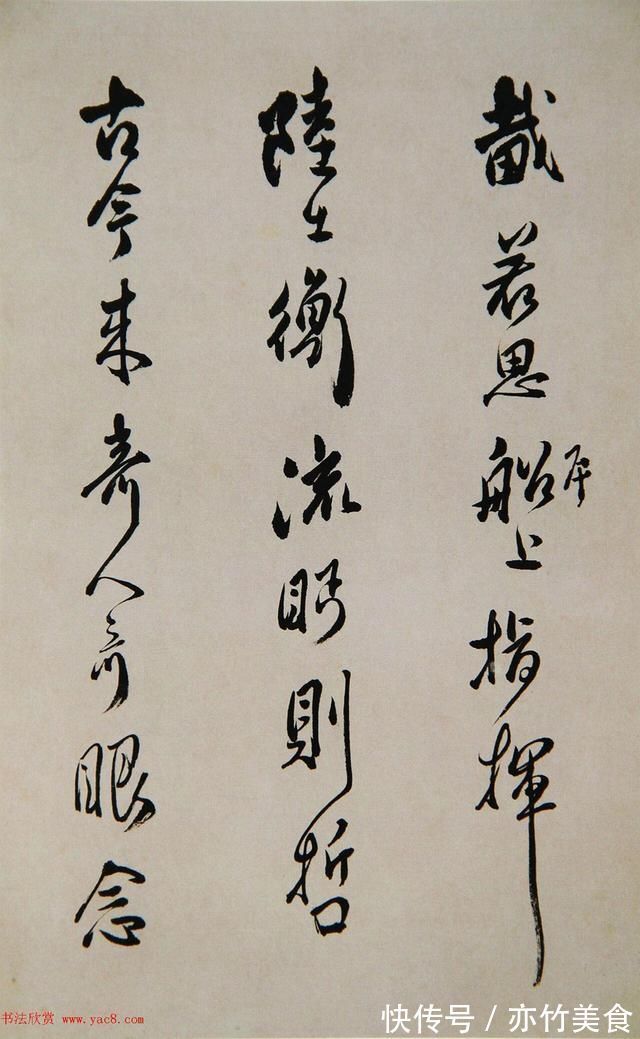 戴若思船屋上指揮
陸士衡流眄則哲
古今来奇人奇眼念
书法欣赏 www.yac8.com
快传号 / 亦竹美食